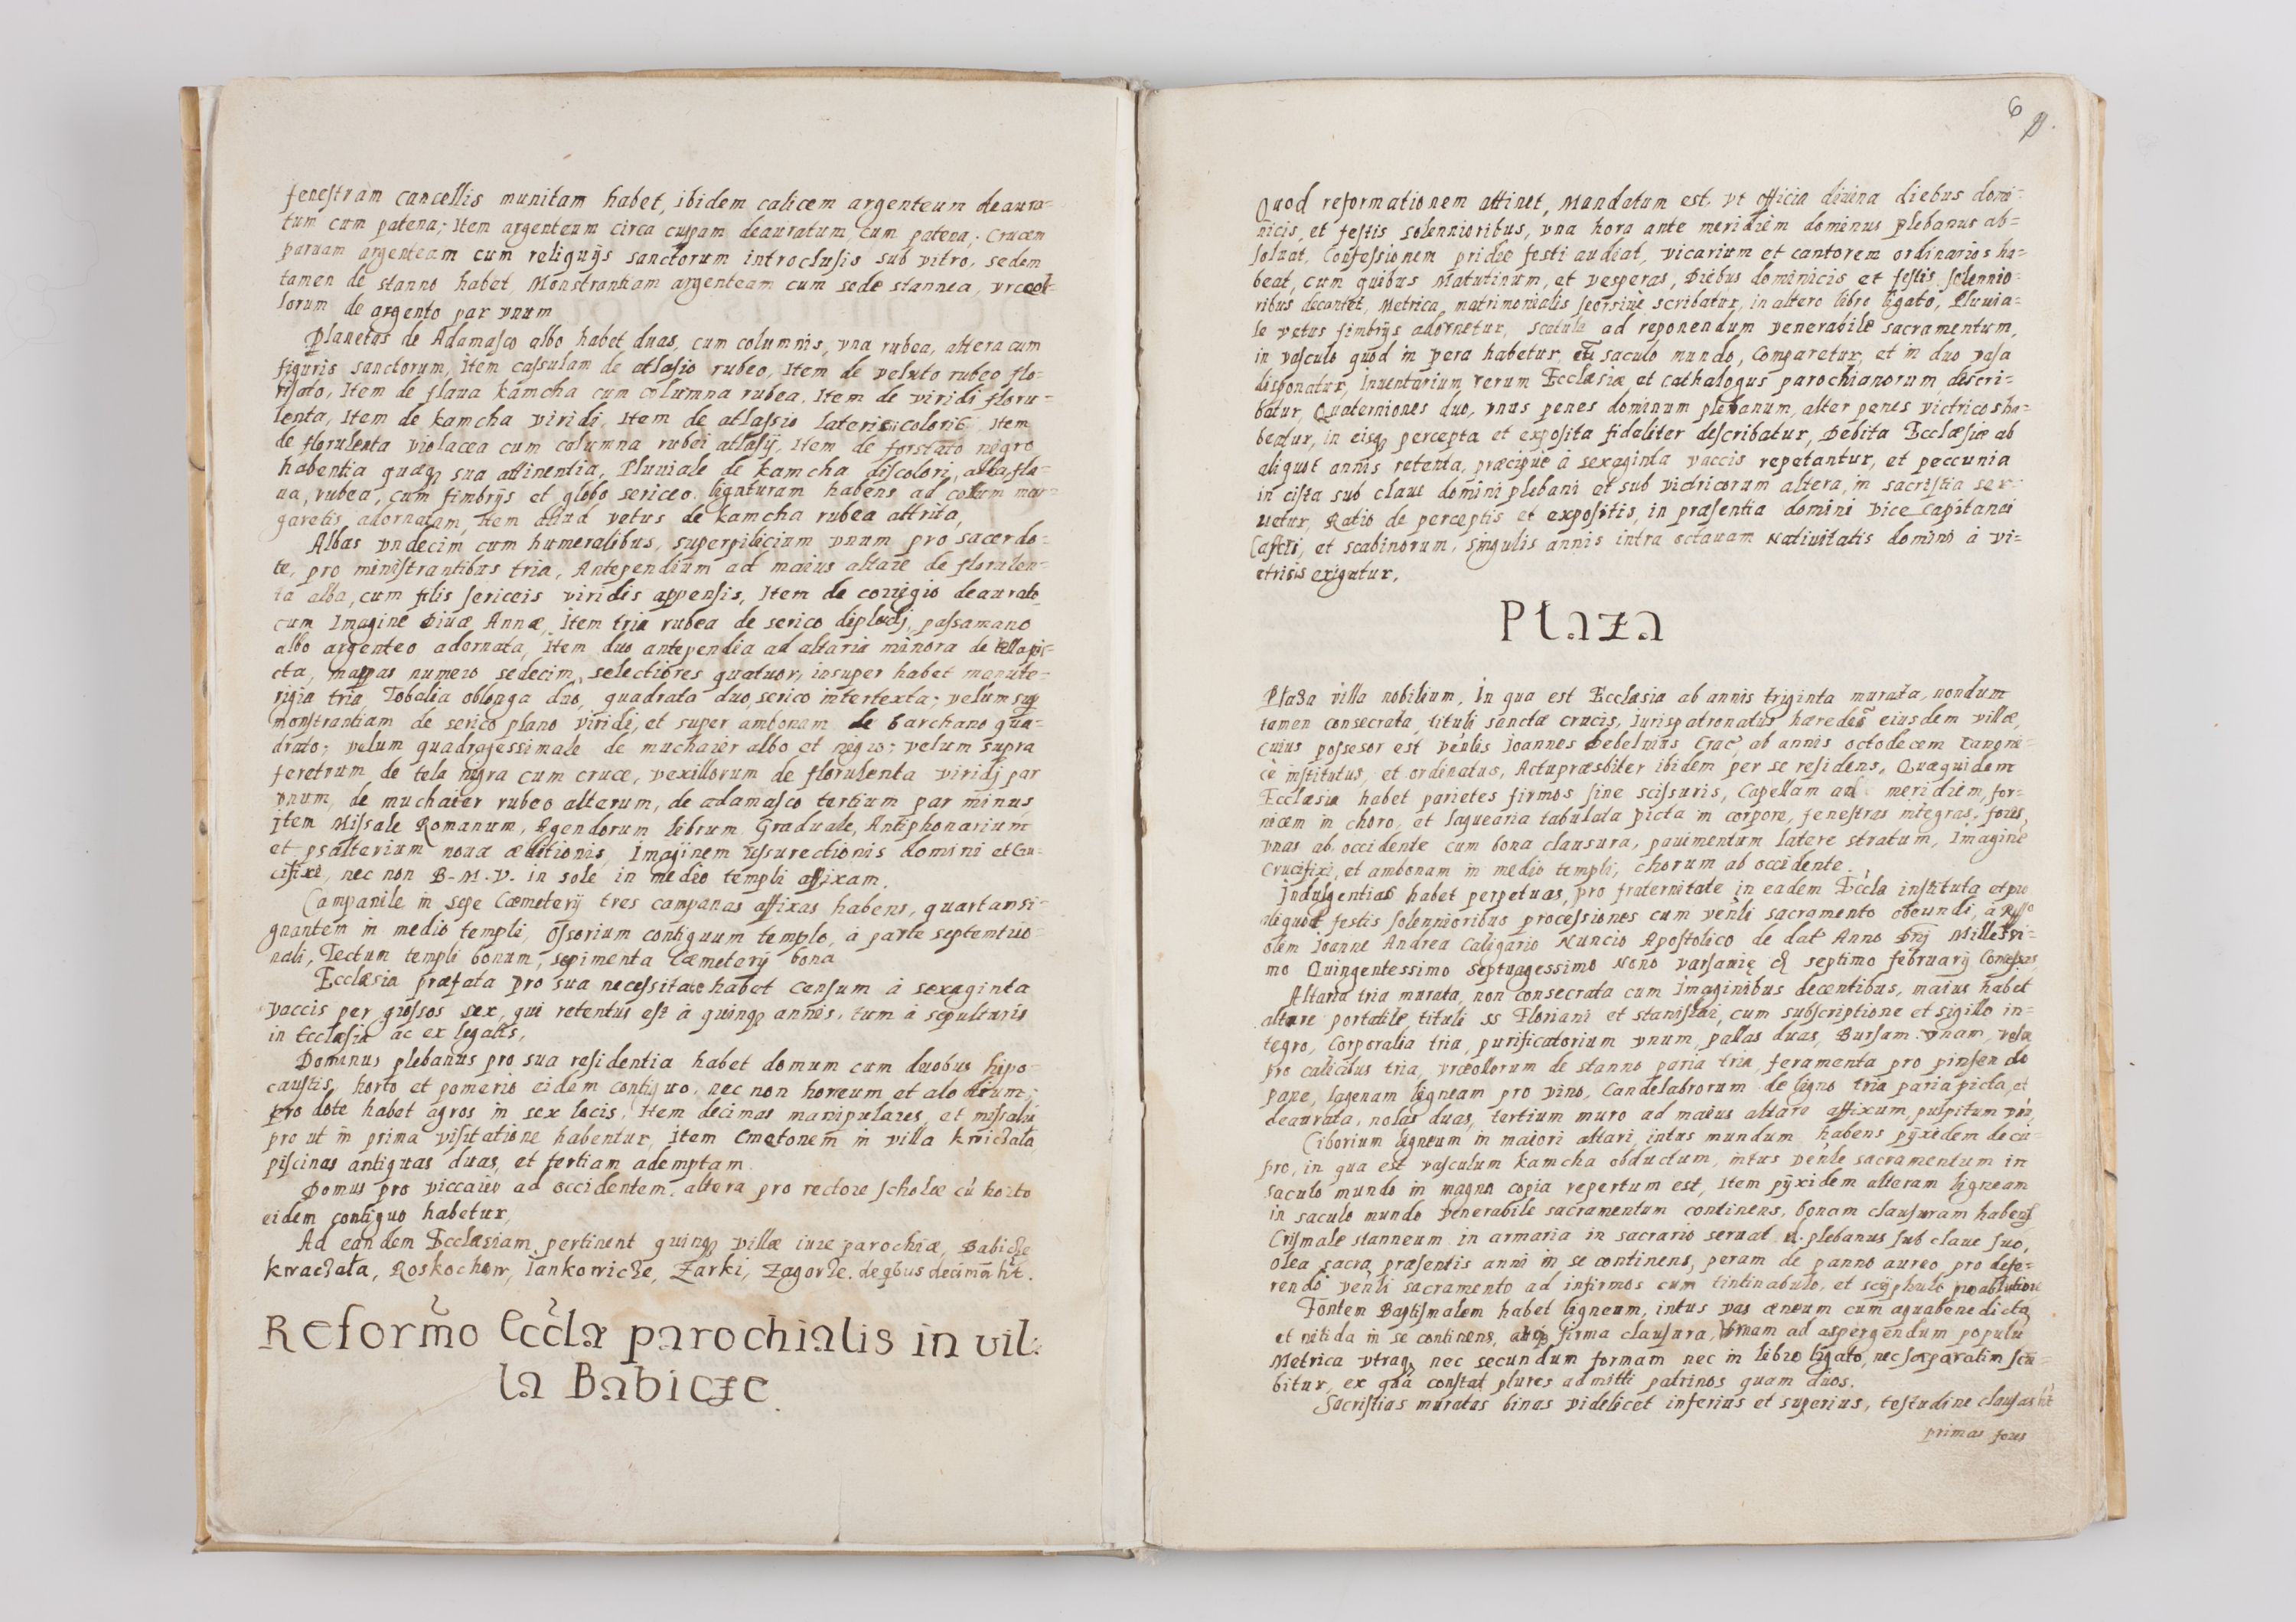 fenestram cancellis munitam habet, ibidem calicem argenteum deaura=
tum cum patena; Item argenteum circa cuppam deauratum, cum patena; Crucem
paruam argenteam cum reliquijs sanctorum introclusis sub vitro, sedem
tamen de stanno habet, Monstrantiam argenteam cum sede stannea, vrceol=
lorum de argento par vnum
Planetas de Adamasco albo habet duas, cum columnis, vna rubea, altera cum
figuris sanctorum, Item casulam de atlasio rubeo, Item de veluto rubeo flo=
risato, Item de flaua kamcha cum columna rubea, Item de viridi floru=
lenta, Item de kamcha viridi, Item de atlassio latericicoloris, Item
de florulenta violacea cum columna rubei atlasij, Item de forstato nigro
habentia quæq sua attinentia, Pluuiale de kamcha discolori, alba, fla=
ua, rubea, cum fimbrijs et globo sericeo, ligaturam habens ad collum mar=
garetis adornatam, Item aliud vetus de kamcha rubea attrita,
Albas vndecim cum humeralibus, superpilicium vnum pro sacerdo=
te, pro ministrantibus tria, Antependium ad maius altare de florulen=
ta alba, cum filis sericeis viridis appensis, Item de corrigio deaurato
cum Imagine Diuæ Annæ, Item tria rubea de serico, passamano
albo argenteo adornata, Item duo antependia ad altaria minora de tella pi=
cta, mappas numero sedecim, selectiores quatuor, insuper habet manute=
rigia tria, Tobalia oblonga duo, quadrata duo, serico intertexta; velum sup
monstrantiam de serico plano viridi, et super ambonam de barchano qua=
drato; velum quadragessimale de muchaier albo et nigro; velum supra
feretrum de tela nigra cum cruce, vexillorum de florulenta viridj par
vnum, de muchaier rubeo alterum, de adamasco tertium par minus
Item Missale Romanum, Agendorum librum, Graduale, Antiphonarium
et psalterium nouæ æditionis, Imaginem resurectionis domini et Cru=
cifixi, nec non B. M. V. in sole in medio templi affixam.
Campanile in sepe Cæmeterij tres campanas affixas habens, quartam si=
gnantem in medio templi, Ossorium contiguum templo, à parte septemtrio=
nali, Tectum templi bonum, sepimenta Cæmeterij bona
Ecclæsia præfata pro sua necessitate habet censum à sexaginta
vaccis per grossos sex, qui retentus est à quinq annis, tum à sepulturis
in Ecclæsia ac ex legatis,
Dominus plebanus pro sua residentia habet domum cum duobus hipo=
caustis, horto et pomerio eidem contiguo, nec non horeum et alodium;
pro dote habet agros in sex locis, Item decimas manipulares, et missalia
pro ut in prima visitatione habentur, Item Cmetonem in villa kwiczala
piscinas antiquas duas, et tertiam ademptam
Domus pro viccario ad occidentem, altera pro rectore scholæ cũ horto
eidem contiguo habetur,
Ad eandem Ecclæsiam pertinent quinq villæ iure parochiæ, Babicze
kwaczała, Roskochow, Iankowicze, Zarki, Zagorze. de qbus decimã hẽt.
Reformõ Eccla parochialis in vil=
la Babicze.
6
Quod reformationem attinet, Mandatum est, vt officia diuina diebus domi=
nicis, et festis solennioribus, vna hora ante meridiem dominus plebanus ab=
soluat, Confessionem pridie festi audiat, vicarium et cantorem ordinarios ha=
beat, cum quibus Matutinum, et vesperas, Diebus dominicis et festis solennio=
ribus decantet, Metrica matrimonialis seorsiue scribatur, in altero libro ligato, Pluuia=
le vetus fimbrijs adornetur, scatula ad reponendum venerabile sacramentum,
in vasculo quod in pera habetur cũ saculo mundo, Comparetur, et in duo vasa
disponatur, Inuentarium rerum Ecclæsiæ et Cathalogus parochianorum descri=
batur, Quaterniones duo, vnus penes dominum plebanum, alter penes victricos ha=
beatur, in eisq percepta et exposita fideliter describatur, Debita Ecclæsiæ ab
aliquot annis retenta, præcipuè à sexaginta vaccis repetantur, et peccunia
in cista sub claue domini plebani et sub victricorum altera, in sacristia ser=
uetur, Ratio de perceptis et expositis, in præsentia domini Vice Capitanei
Castri, et scabinorum, singulis annis intra octauam Natiuitatis domini à vi=
ctricis exigatur,
Płaza
Płaza villa nobilium, in qua est Ecclæsia ab annis triginta murata, nondum
tamen consecrata, tituli sanctæ crucis, Iurispatronatus hæredes eiusdem villæ,
cuius possesor est venlis Joannes Debelnius Crac, ab annis octodecem Canoni=
cè institutus, et ordinatus, Actupræsbiter ibidem per se residens, Quæquidem
Ecclæsia habet parietes firmos sine scissuris, Capellam ad meridiem, for=
nicem in choro, et laquearia tabulata picta in corpore, fenestras integras, fores,
vnas ab occidente cum bona clausura, pauimentum latere stratum, Imagine
Crucifixi, et ambonam in medio templi, chorum ab occidente.
Indulgentias habet perpetuas, pro fraternitate in eadem Eccla instituta et pro
aliquot festis solennioribus processiones cum venli sacramento obeundi, à
olem Joanne Andrea Caligario Nuncio Apostolico de dat Anno Dnj Millesi=
mo Quingentessimo septuagessimo Nono varsauiæ septimo februarij Concessas
Altaria tria murata, non consecrata cum Imaginibus decentibus, maius habet
altare portatile tituli ss Floriani et stanislai, cum subscriptione et sigillo in=
tegro, Corporalia tria, purificatorium vnum, pallas duas, Bursam vnam, vela
pro calicibus tria, vrceollorum de stanno paria tria, feramenta pro pinsendo
pane, lagenam ligneam pro vino, Candelabrorum de ligno tria paria picta, et
deaurata, nolas duas, tertium muro ad maius altare affixum, pulpitum vnũ,
Ciborium ligneum in maiori altari, intus mundum habens pÿxidem de cu=
pro, in qua est vasculum kamcha obductum, intus venle sacramentum in
saculo mundo in magna copia repertum est, Item pÿxidem alteram ligneam
in saculo mundo venerabile sacramentum continens, bonam clausuram habens
Crismale stanneum in armaria in sacrario seruat d. plebanus sub claue suo,
Olea sacra præsentis anni in se continens, peram de panno aureo pro defe=
rendo venli sacramento ad infirmos cum tintinabulo, et scÿphulo pro ablutione
Fontem Baptismalem habet ligneum, intus vas æneum cum aqua benedicta
et nitida in se continens, firma clausura, Vrnam ad aspergendum populũ
Metrica vtraq nec secundum formam nec in libro ligato, nec sæparatim scri=
bitur, ex qua constat plures admitti patrinos quam duos.
Sacristias muratas binas videlicet inferius et superius, testudine clausas hẽt
primas fores